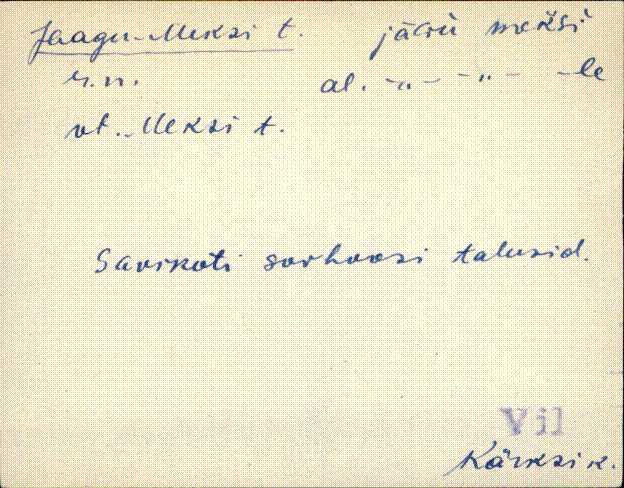 Jaagu-Meksi t. jācū mekši
r.n. al. -„- -„- -le
vt. Meksi t.
Savikoti sovhoosi talusid.
Vil
Kärksi k.